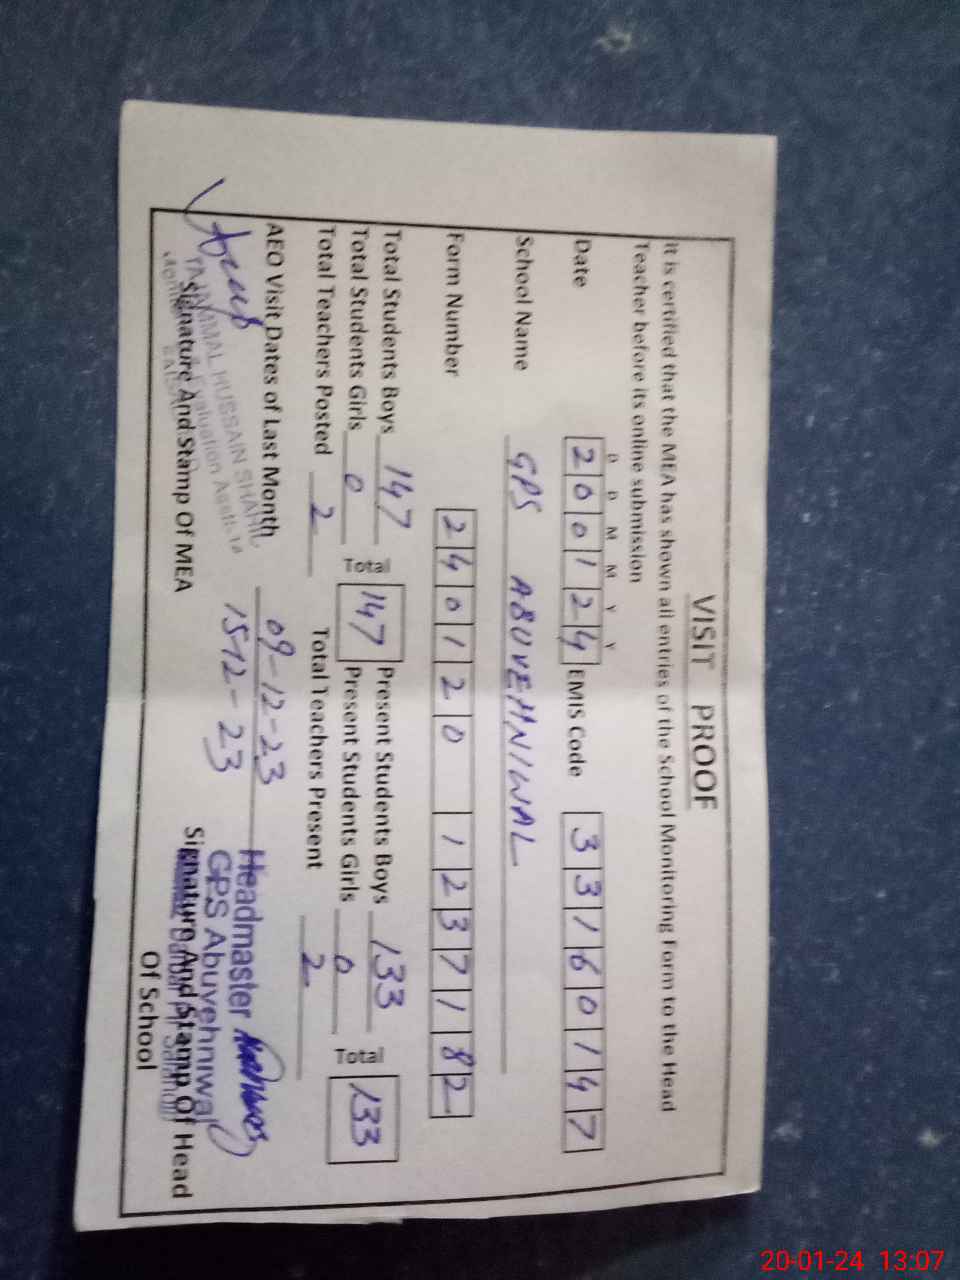 VISIT PROOF
It is certified that the MEA has shown all entries of the School Monitoring Form to the Head
Teacher before its online submission
D D M M Y Y
Date 2 0 0 1 2 4 EMIS Code 3 3 1 6 0 1 4 7
School Name GPS ABUVEHNIWAL
Form Number 2 4 0 1 2 0 1 2 3 7 1 8 2
Total Students Boys 147 Total 147 Present Students Boys 133 Total 133
Total Students Girls 0 Present Students Girls 0
Total Teachers Posted 2 Total Teachers Present 2
AEO Visit Dates of Last Month 09-12-23
15-12-23
TAJAMMAL HUSSAIN SHAHID
Evaluation
Signature And Stamp Of MEA
Headmaster
GPS Abuvehniwal
Signature And Stamp Of Head
Of School
20-01-24 13:07